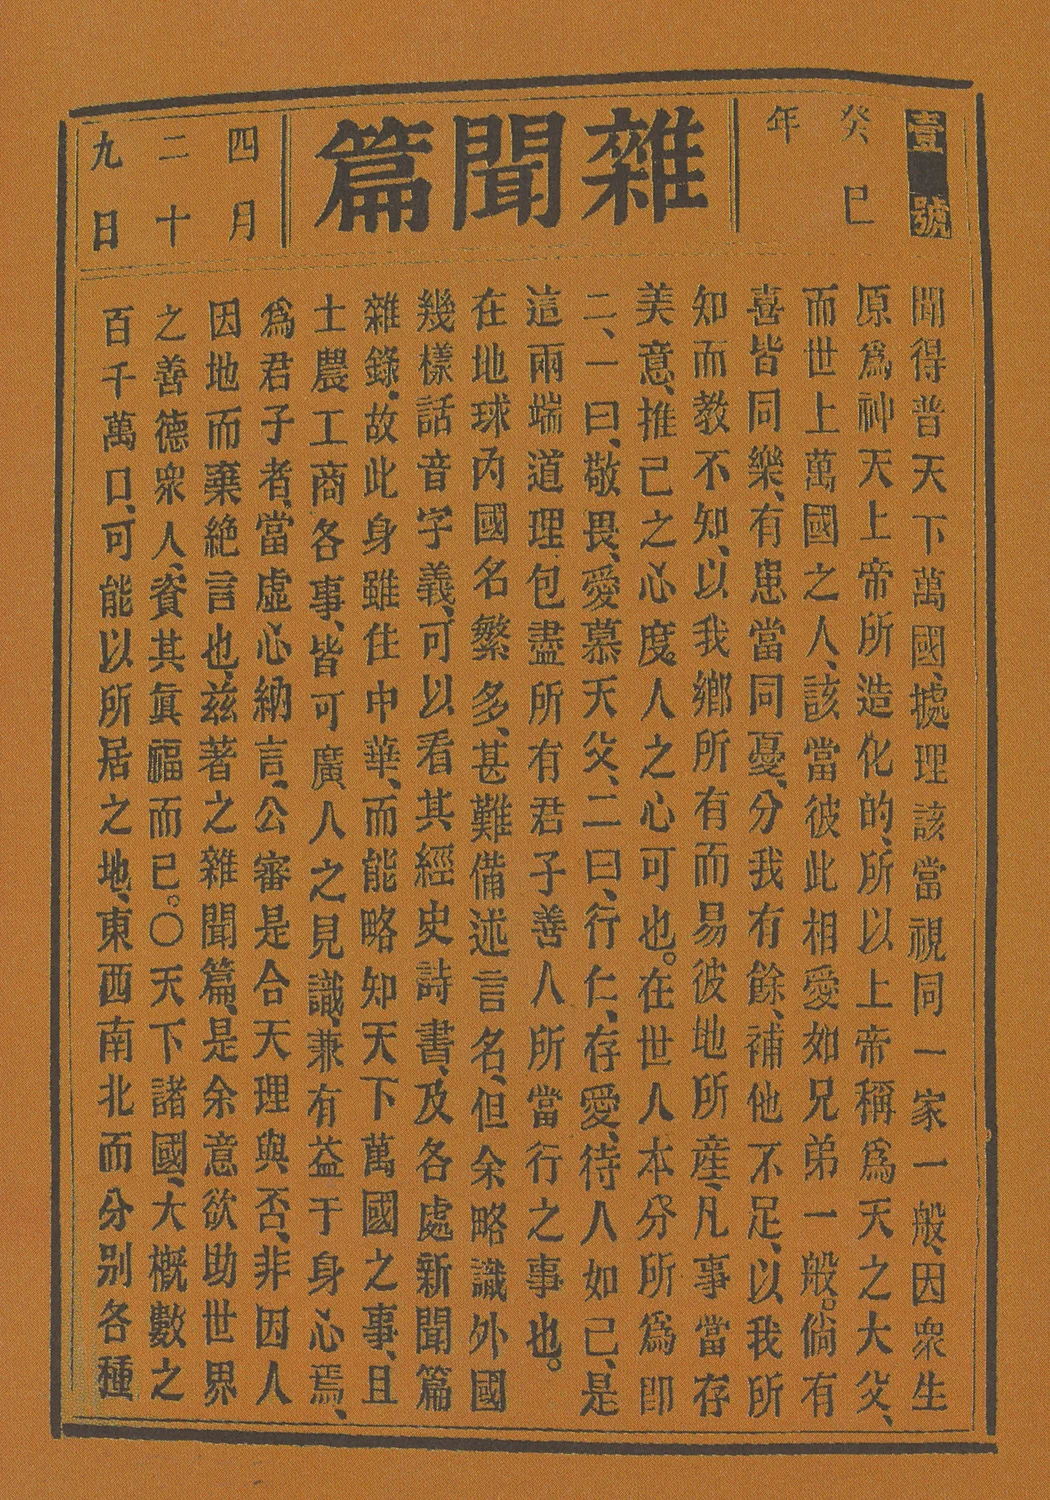 壹號
癸巳
年
雜聞篇
四月
二十
九日
聞得普天下萬國、據理該當視同一家一般、因衆生
原爲神天上帝所造化的、所以上帝稱爲天之大父、
而世上萬國之人、該當彼此相愛如兄弟一般。倘有
喜皆同樂、有患當同憂、分我有餘、補他不足、以我所
知而教不知、以我鄉所有而易彼地所産、凡事當存
美意、推己之心度人之心可也。在世人本分所爲卽
二、一曰、敬畏、愛慕天父、二曰、行仁、存愛、待人如己、是
這兩端道理包盡所有君子善人所當行之事也。
在地球內國名繁多、甚難備述言名、但余略識外國
幾樣話音字義、可以看其經史詩書、及各處新聞篇
雜錄、故此身雖住中華、而能略知天下萬國之事、且
士農工商各事、皆可廣人之見識、兼有益于身心焉、
爲君子者、當虛心納言、公審是合天理與否、非因人
因地而棄絕言也、兹著之雜聞篇、是余意欲助世界
之善德衆人、資其眞福而已。〇天下諸國、大概數之
百千萬口、可能以所居之地、東西南北而分別各種